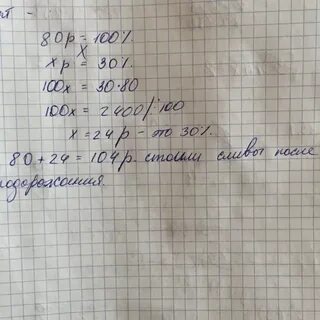 80р = 100%
х
хр = 30%
100х = 30·80
100х = 2400 |:100
х = 24р - это 30%
80+24 = 104р. стоили сливы после
подорожания.